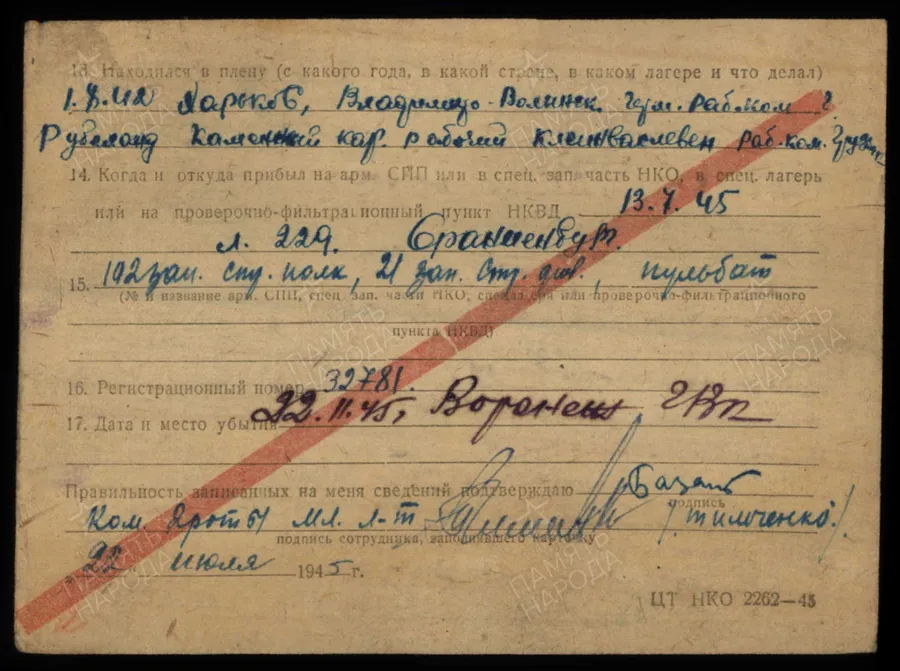 13. Находился в плену (с какого года, в какой стране, в каком лагере и что делал)
Харьков, Владимир-Волынск
Рубеланд рабочий раб-ком.
14. Когда и откуда прибыл на арм. СПП или в спец. зап. часть НКО, в спец. лагерь
или на проверочно-фильтрационный пункт НКВД 13.7.45
л. 229. Ораниенбург.
15. 192 зап. стр. полк, 21 зап. стр. див., пульбат
(№ и название арм. СПП, спец. зап. части НКО, спецлагеря или проверочно-фильтрационного
пункта НКВД)
16. Регистрационный номер 32781.
17. Дата и место убытия 22.11.45, Воронеж ГВК
Правильность записанных на меня сведений подтверждаю
подпись
Ком. роты мл. л-т /Тимченко/
подпись сотрудника, заполнившего карточку
22 июля 1945 г.
ЦТ НКО 2262—45
ПАМЯТЬ НАРОДА